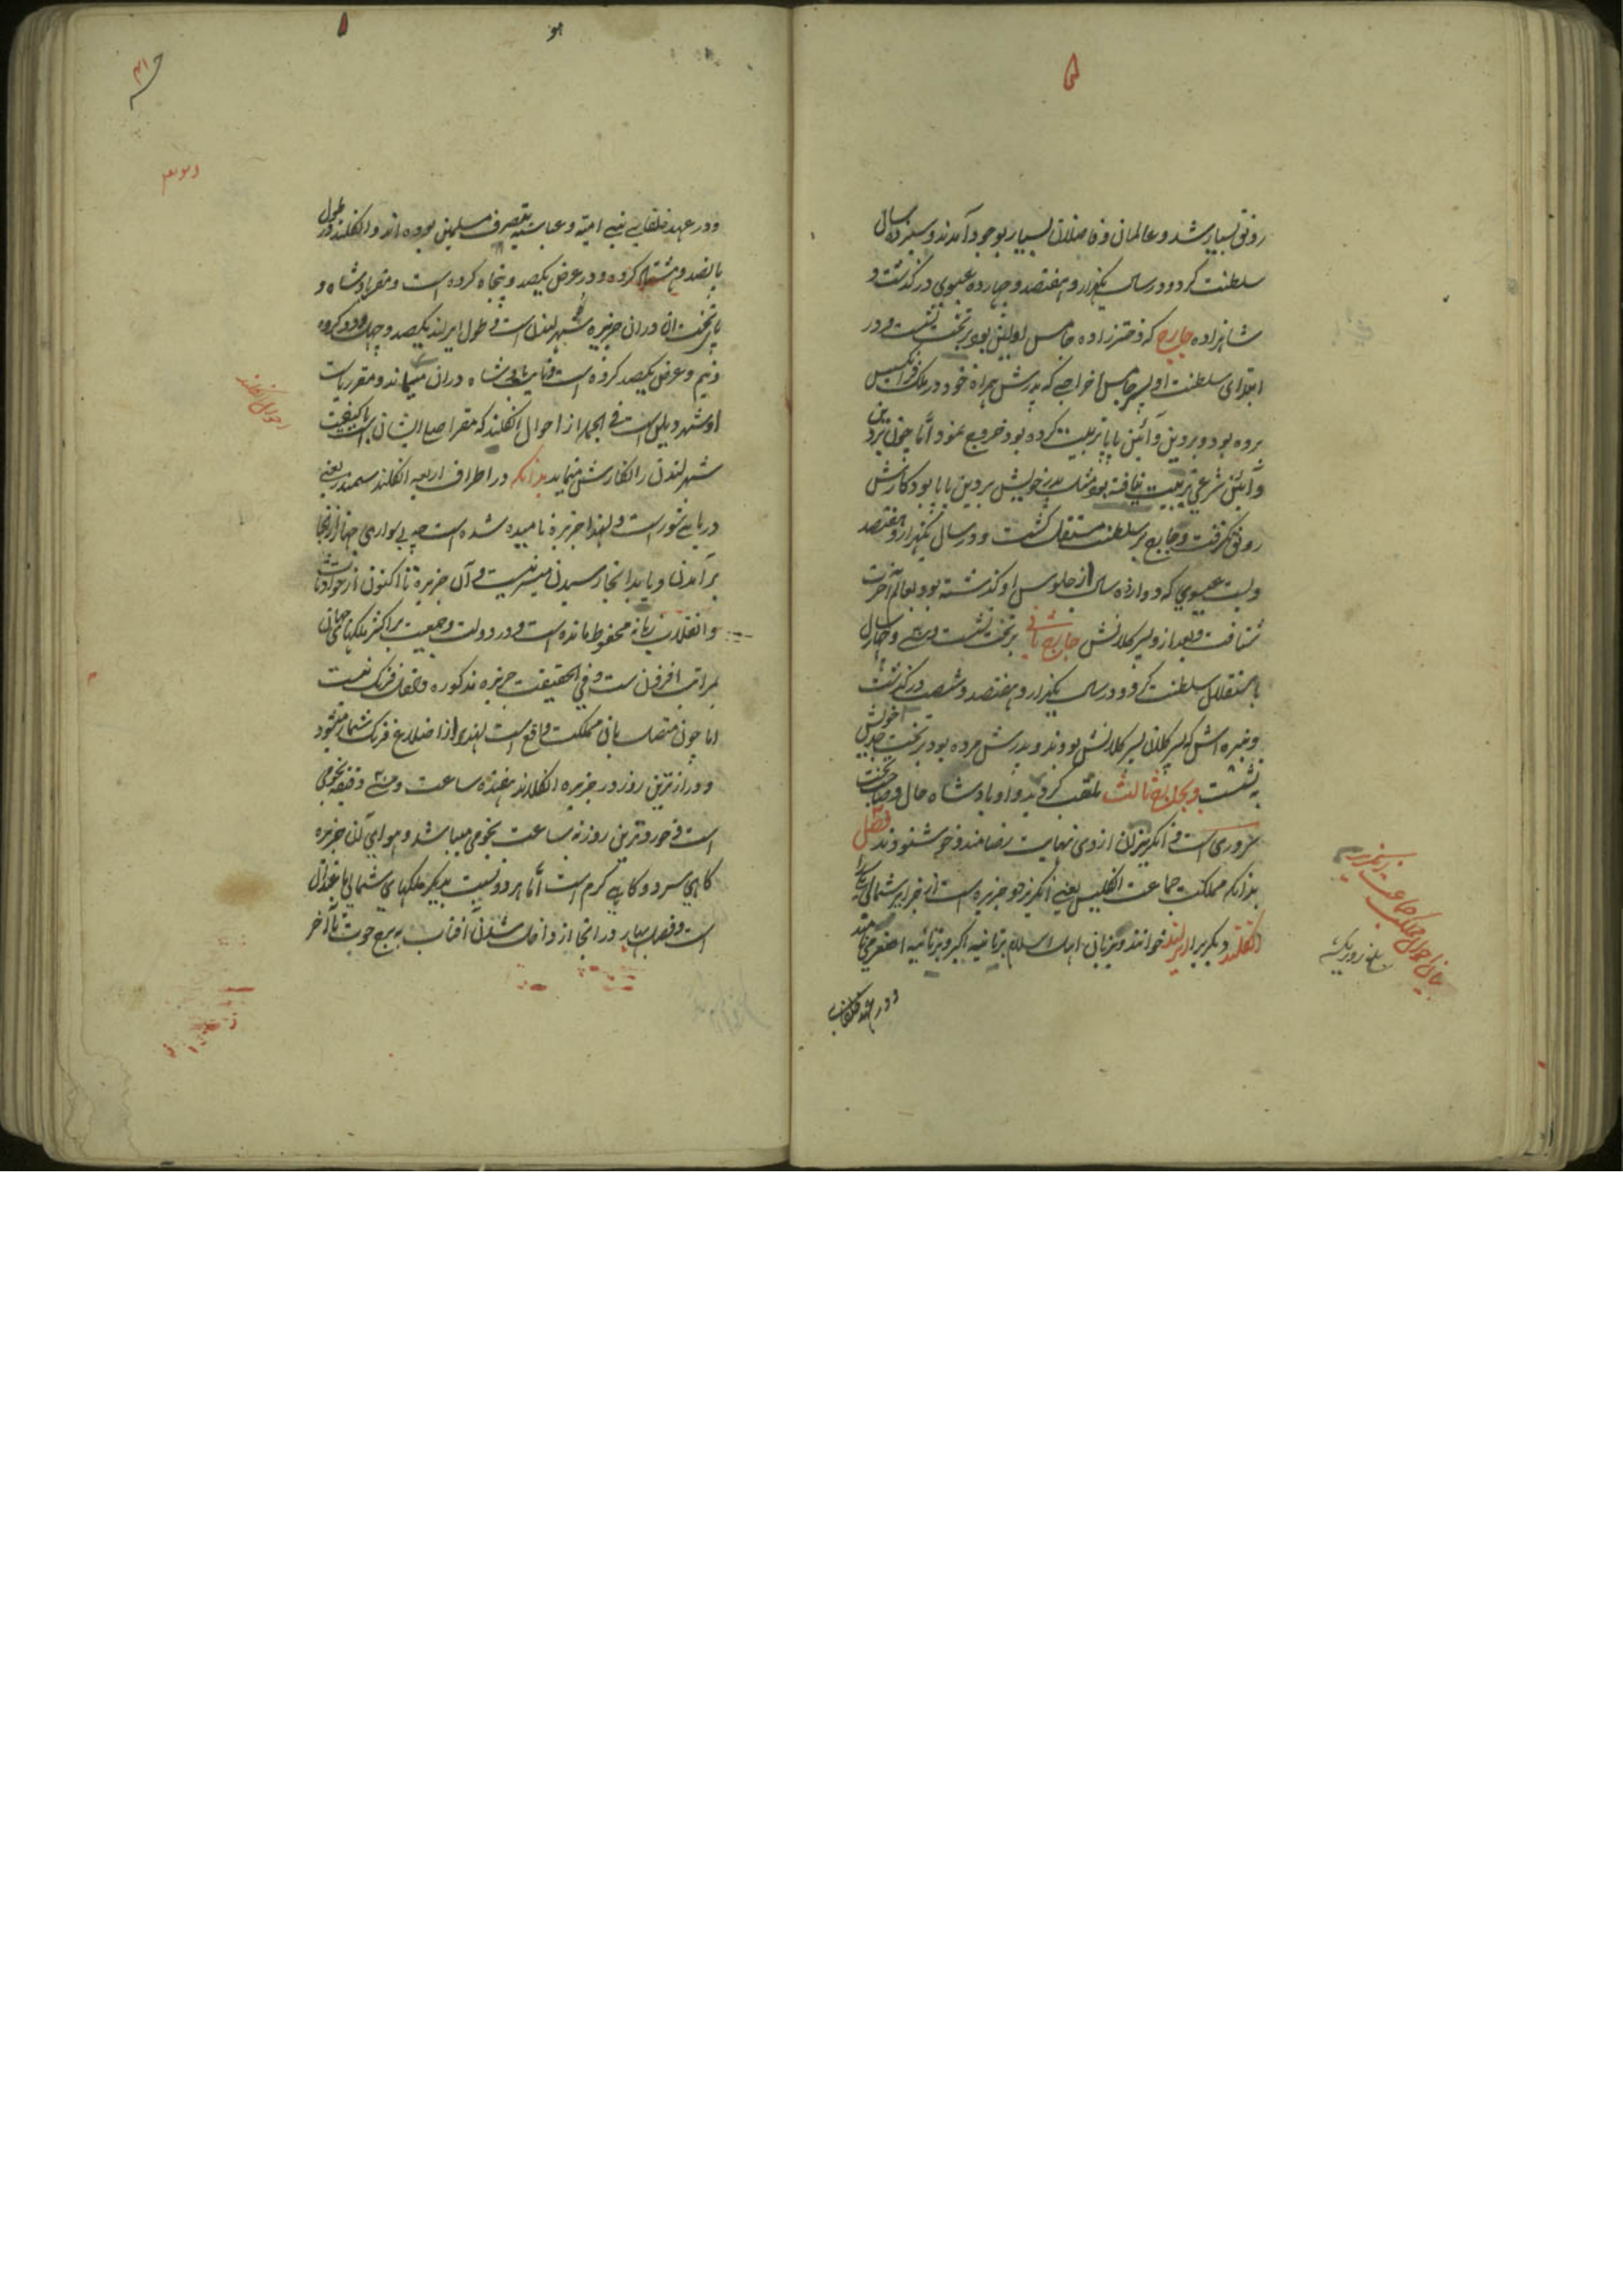 رونق بسیار شد و عالمان و فاضلان بسیار بوجود آمدند و سیزده سال
سلطنت کرد و در سال یکهزار و هفتصد و چهارده عیسوی درگذشت و
شاهزاده جارج که دخترزاده جامس اولین بود بر تخت نشست و در
ابتدای سلطنت او پسر جامس اخراجی که پدرش همراه خود در ملک فرانسیس
برده بود و بر دین و آئین پاپا تربیت کرده بود خروج نمود اما چون بر دین
و آئین شرعی تربیت نیافته بود مثل پدر خویش بر دین پاپا بود کارش
رونق نگرفت و جارج بر سلطنت مستقل گشت و در سال یکهزار و هفتصد
و بست عیسوی که دوازده سال از جلوس او گذشته بود بعالم آخرت
شتافت و بعد از و پسر کلانش جارج ثانی بر تخت نشست و سی و چهار سال
باستقلال سلطنت کرد و در سال یکهزار و هفتصد و شصت درگذشت
و نبیره اش که پسر کلان پسر کلانش بود و پدرش مرده بود بر تخت جد خویش
بنشست و بجارج ثالث ملقب گردید و او پادشاه حال و صاحب تخت
سروری است و انگریزان ازوی نهایت رضامند و خوشنودند فصل
بدانکه مملکت جماعت انگلیس یعنی انگریز دو جزیره است از جزایر شمالی یکی را
انگلند و دیگر را ایرلند خوانند و بزبان اهل اسلام برتانیه اکبر و برتانیه اصغر می نامند
و در عهد خلفای
بیان احوال مملکت جماعت انگریز
و در عهد خلفای بنی امیه و عباسیه بتصرف مسلمین بوده اند و انگلند در طول
پانصد و هشتاد کروه و در عرض یکصد و پنجاه کروه است و مقر پادشاه و
پای تخت آن دران جزیره شهر لندن است و طول ایرلند یکصد و چهل و دو کروه
و نیم و عرض یکصد کروه است و نایب پادشاه دران میماند و مقر ریاست
او شهر دبلن است فی الجمله از احوال انگلند که مقر اصلی ایشان است با کیفیت
شهر لندن را نگارش مینماید بدانکه در اطراف اربعه انگلند سمندر یعنی
دریای شور است و لهذا جزیره نامیده شده است چه بی سواری جهاز از آنجا
برآمدن و یا بدانجا رسیدن میسر نیست و آن جزیره تا اکنون از حوادثات
و انقلاب زمانه محفوظ مانده است و در دولت و جمعیت بر اکثر ملکهای جهان
بمراتب افزون است و فی الحقیقت جزیره مذکوره داخل فرنگ نیست
اما چون متصل بآن مملکت واقع است لهذا از اضلاع فرنگ شمار میشود
و درازترین روز در جزیره انگلند هفده ساعت و سی دقیقه نجومی
است و خوردترین روز نه ساعت نجومی میباشد و هوای آن جزیره
گاهی سرد و گاهی گرم است اما هر دو نسبت بدیگر ملکهای شمالی باعتدال
است و فصل بهار در انجا از داخل شدن آفتاب به برج حوت تا آخر
احوال انگلند